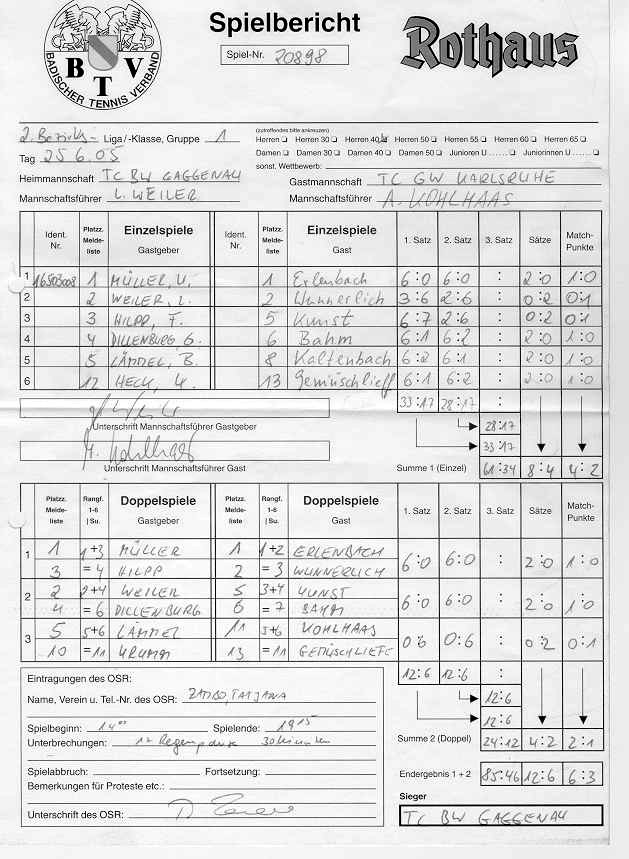 Spielbericht
Rothaus
BADISCHER TENNIS VERBAND
B T V
Spiel-Nr. 20898
(zutreffendes bitte ankreuzen)
2. Bezirks- Liga/-Klasse, Gruppe 1
Herren Herren 30 Herren 40 Herren 50 Herren 55 Herren 60 Herren 65
Damen Damen 30 Damen 40 Damen 50 Junioren U...... Juniorinnen U......
sonst. Wettbewerb:
Tag 25.6.05
Heimmannschaft TC BW GAGGENAU
Gastmannschaft TC GW KARLSRUHE
Mannschaftsführer L. WEILER
Mannschaftsführer A. KOHLHAAS
Ident. Nr. Platzz. Melde-liste Einzelspiele Gastgeber Ident. Nr. Platzz. Melde-liste Einzelspiele Gast 1. Satz 2. Satz 3. Satz Sätze Match-Punkte
1 16503008 1 MÜLLER, U. 1 Erlenbach 6:0 6:0 : 2:0 1:0
2 2 WEILER, L. 2 Wunnerlich 3:6 2:6 : 0:2 0:1
3 3 HILPP, F. 5 Kunst 6:7 2:6 : 0:2 0:1
4 4 DILLENBURG, G. 6 Bahm 6:1 6:2 : 2:0 1:0
5 5 LÄMMEL, B. 8 Kaltenbach 6:2 6:1 : 2:0 1:0
6 12 HECK, 13 Gemüschlieff 6:1 6:2 : 2:0 1:0
33:17 28:17 :
28:17
Unterschrift Mannschaftsführer Gastgeber
33:17
Unterschrift Mannschaftsführer Gast
Summe 1 (Einzel) 61:34 8:4 4:2
Platzz. Melde-liste Rangf. 1-6 | Su. Doppelspiele Gastgeber Platzz. Melde-liste Rangf. 1-6 | Su. Doppelspiele Gast 1. Satz 2. Satz 3. Satz Sätze Match-Punkte
1 1 1+3 MÜLLER 1 1+2 ERLENBACH 6:0 6:0 : 2:0 1:0
3 =4 HILPP 2 =3 WUNNERLICH
2 2 2+4 WEILER 5 3+4 KUNST 6:0 6:0 : 2:0 1:0
4 =6 DILLENBURG 6 =7 BAHM
3 5 5+6 LÄMMEL 11 5+6 KOHLHAAS 0:6 0:6 : 0:2 0:1
10 =11 KRUMM 13 =11 GEMÜSCHLIEFF
12:6 12:6 :
Eintragungen des OSR:
Name, Verein u. Tel.-Nr. des OSR: ZAMBO, TATJANA
12:6
12:6
Spielbeginn: 14⁰⁰ Spielende: 19 15
Unterbrechungen: 1x Regenpause 30 Minuten
Summe 2 (Doppel) 24:12 4:2 2:1
Spielabbruch: Fortsetzung:
Bemerkungen für Proteste etc.:
Endergebnis 1 + 2 85:46 12:6 6:3
Sieger
Unterschrift des OSR:
TC BW GAGGENAU